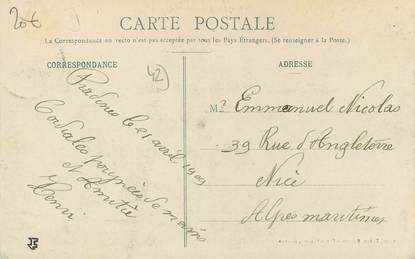 20€
CARTE POSTALE
La Correspondance en recto n'est pas acceptée par tous les Pays Étrangers. (Se renseigner à la Poste.)
CORRESPONDANCE
(42)
Pradines le 21 avril 1909
Cordiales poignées de mains
et Amitié
Henri
ADRESSE
Mr Emmanuel Nicolas
39 Rue d'Angleterre
Nice
Alpes maritimes